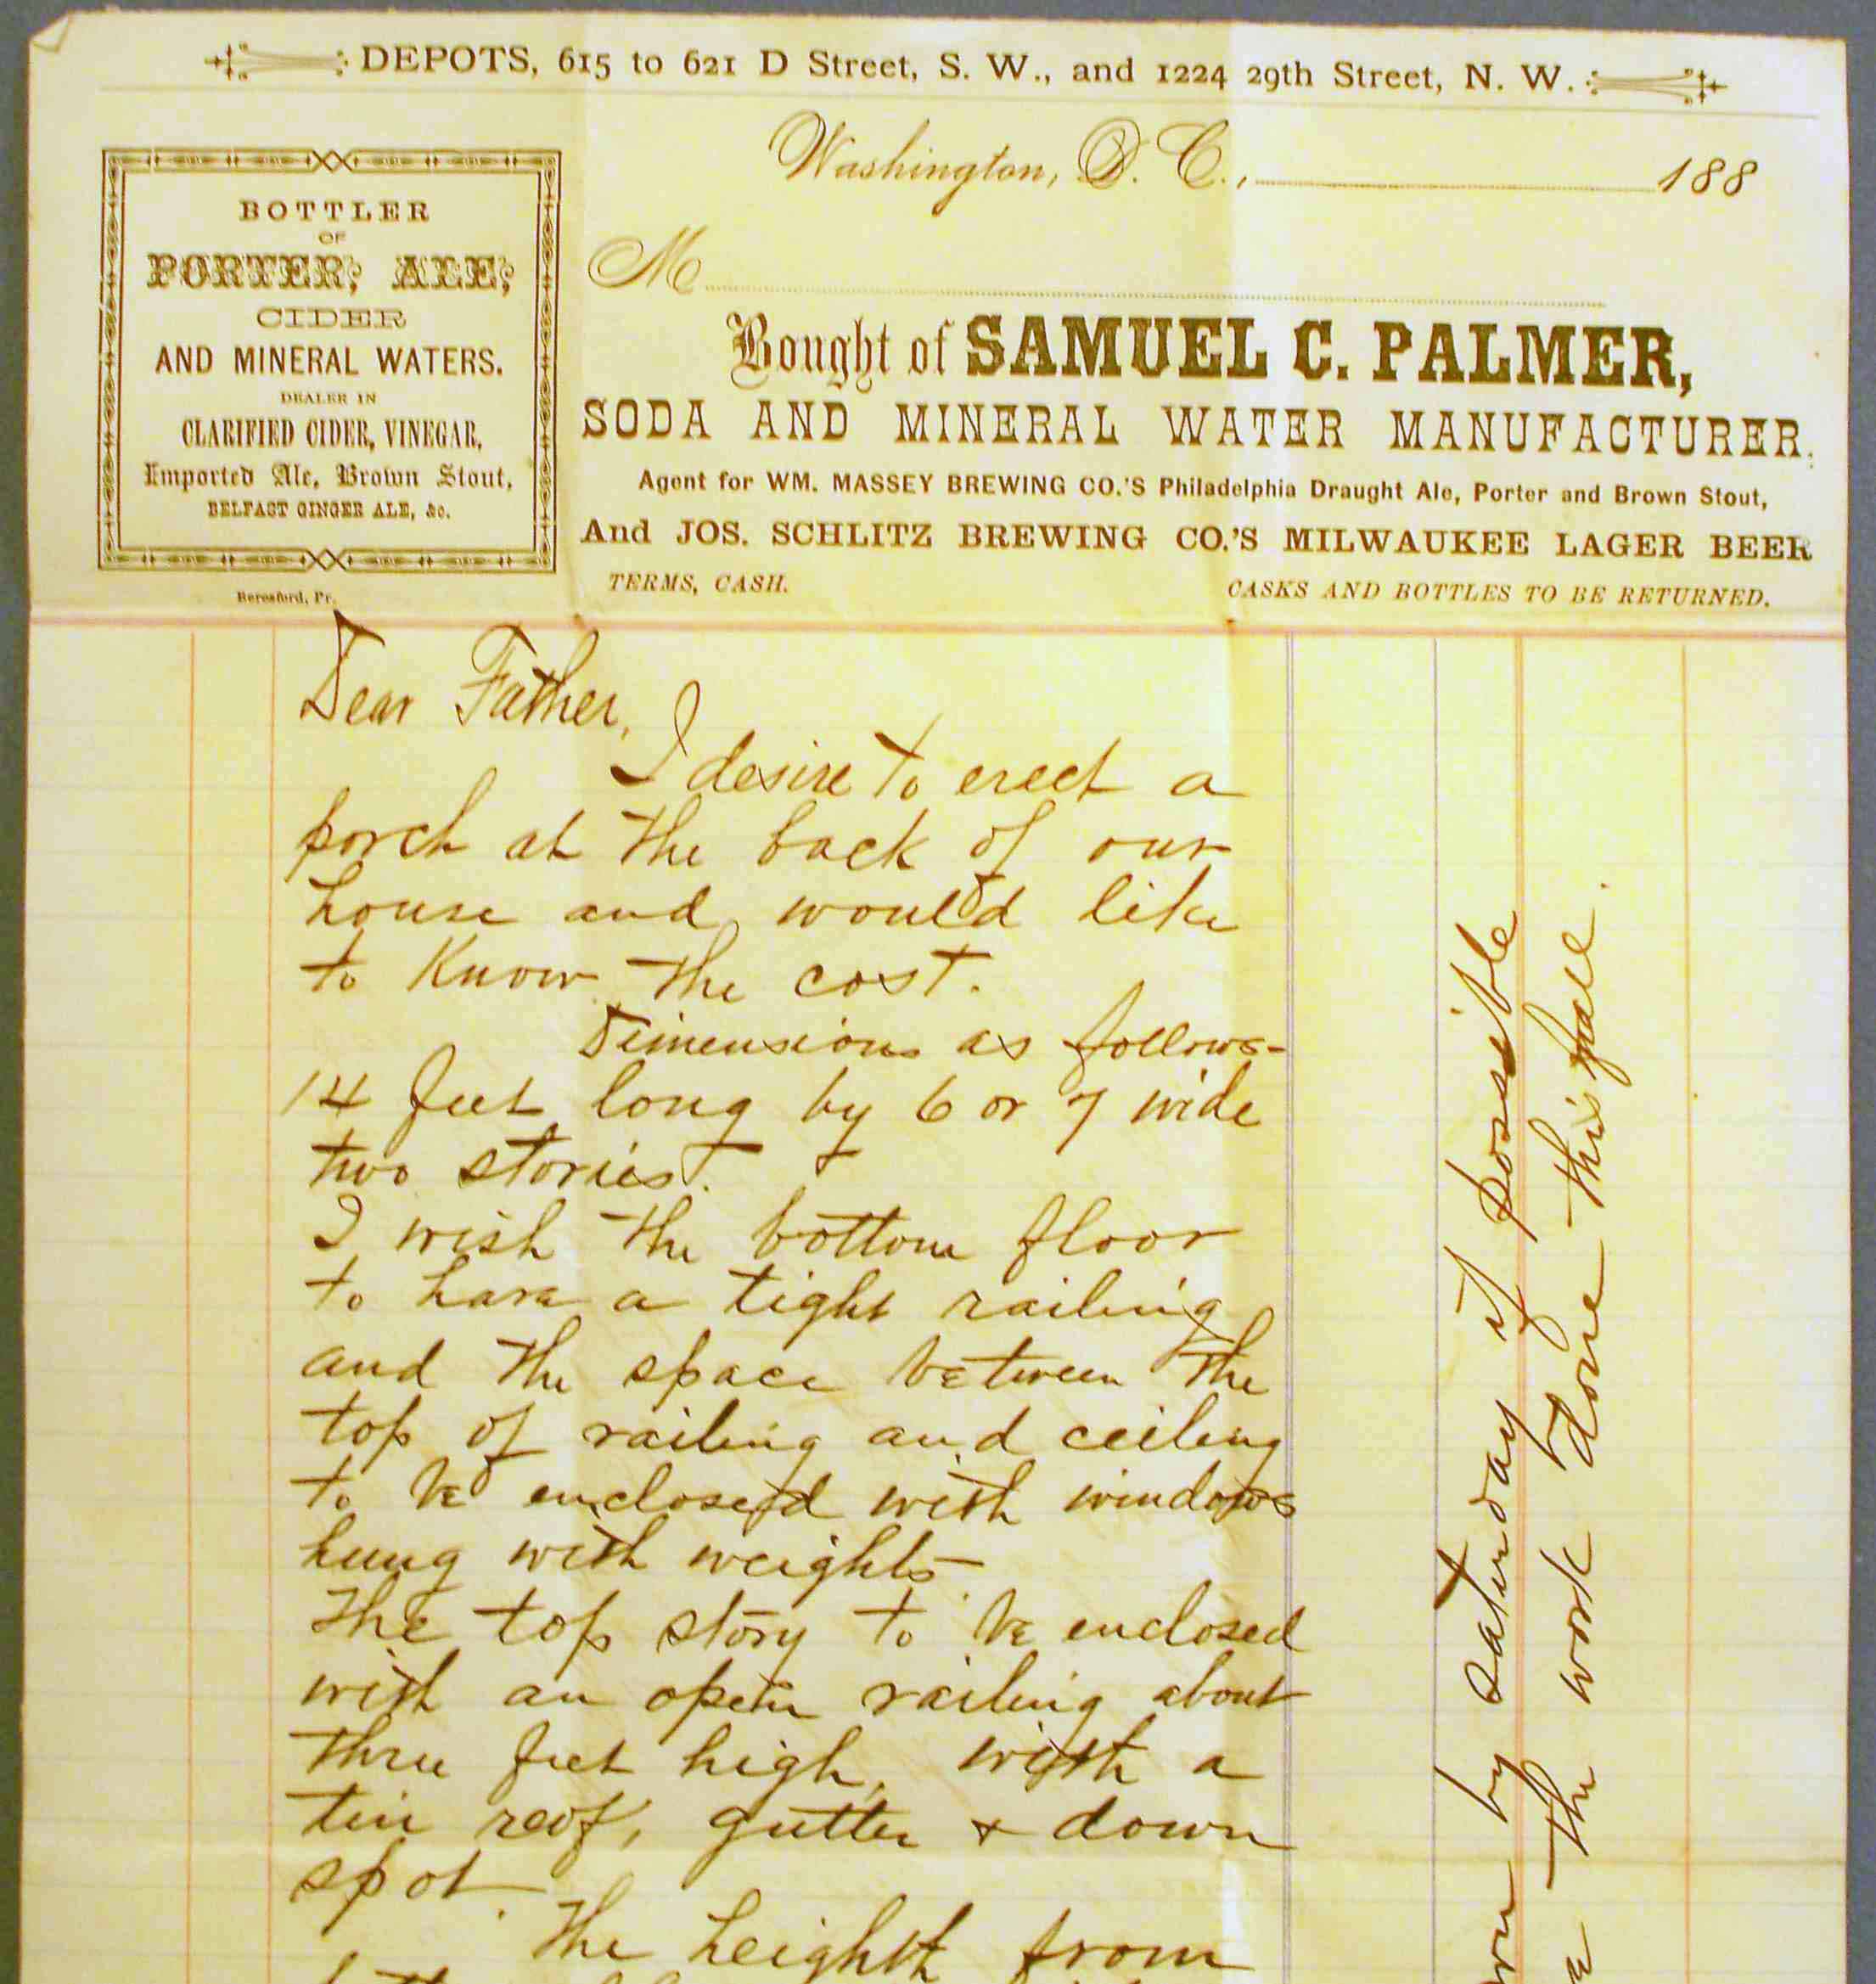 DEPOTS, 615 to 621 D Street, S. W., and 1224 29th Street, N. W.
Washington, D. C., 188
M
BOTTLER
OF
PORTER, ALE,
CIDER
AND MINERAL WATERS.
DEALER IN
CLARIFIED CIDER, VINEGAR,
Imported Ale, Brown Stout,
BELFAST GINGER ALE, &c.
Beresford, Pr.
Bought of SAMUEL C. PALMER,
SODA AND MINERAL WATER MANUFACTURER.
Agent for WM. MASSEY BREWING CO.'S Philadelphia Draught Ale, Porter and Brown Stout,
And JOS. SCHLITZ BREWING CO.'S MILWAUKEE LAGER BEER
TERMS, CASH. CASKS AND BOTTLES TO BE RETURNED.
Dear Father,
I desire to erect a
porch at the back of our
house and would like
to Know the cost.
Dimensions as follows-
14 feet long by 6 or 7 wide
two stories.
I wish the bottom floor
to have a tight railing
and the space between the
top of railing and ceiling
to be enclosed with windows
hung with weights-
The top story to be enclosed
with an open railing about
three feet high, with a
tin roof, gutter & down
spot.
The height from
by saturday if possible
the work done this fall.